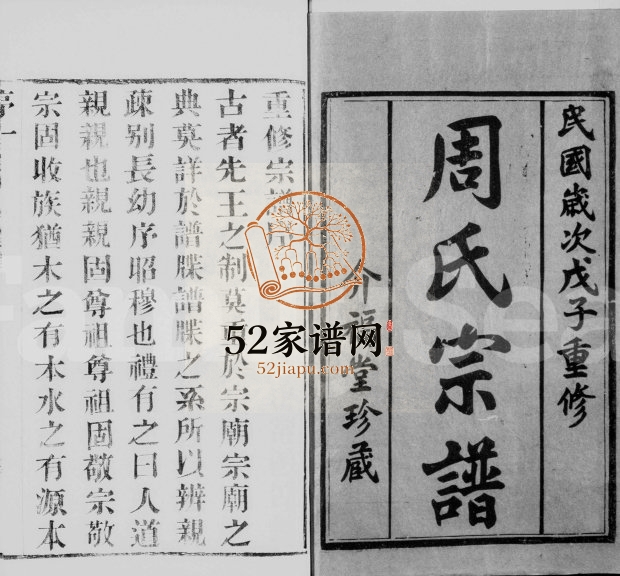 民國歲次戊子重修
周氏宗譜
介福堂珍藏
重修宗譜序
古者先王之制莫 於宗廟宗廟之
典莫詳於譜牒譜牒之系所以辨親
疎别長幼序昭穆也禮有之曰人道
親親也親親固尊祖尊祖固敬宗敬
宗固收族猶木之有木水之有源本
52家谱网
52jiapu.com